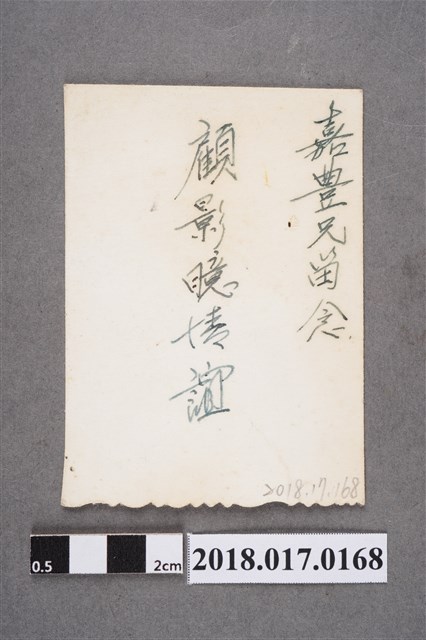 嘉豊兄笛念
顧影臆情誼
2018.17.168
0.5
2cm
2018.017.0168